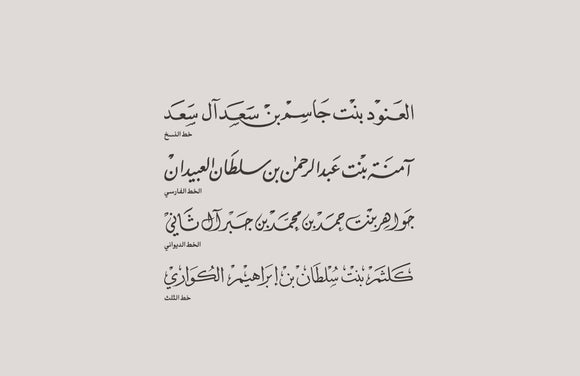 العَنوْد بنْت جَاسِمْ بنْ سَعَد آل سَعَد
خط النسخ
آمنَة بنْت عَبدالرحمٰن بن سلطَان العبيدانْ
الخط الفارسي
جَواهِر بنت حمَد بن محمَّد بن جبْر آل ثَانيْ
الخط الديواني
كَلثَمْ بنْتْ سُلْطَانْ بنْ إبرَاهيْمْ الكوَاريْ
خط الثلث